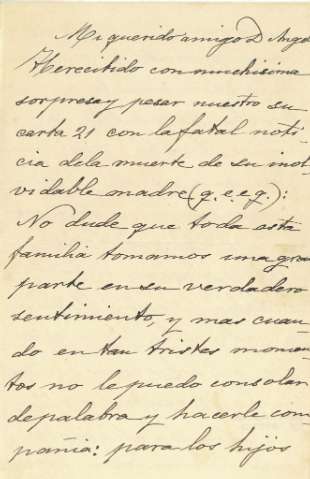 Mi querido amigo D Ange
He recibido con muchisima
sorpresa y pesar nuestro su
carta 21 con la fatal noti
cia de la muerte de su inol
vidable madre (q. e. e. g.):
No dude que toda esta
familia tomamos una gran
parte en su verdadero
sentimiento, y mas cuan
do en tan tristes momen
tos no le puedo consolar
de palabra y hacerle com
pañia: para los hijos